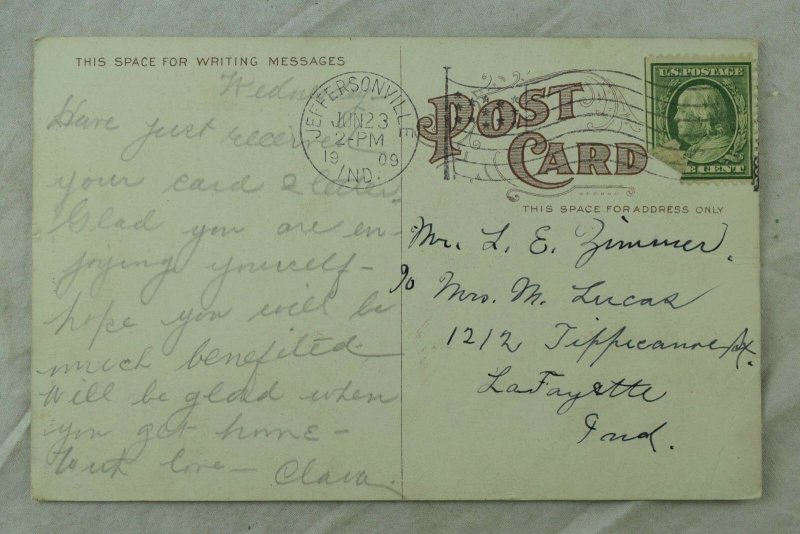 THIS SPACE FOR WRITING MESSAGES
Wednesday
Have just received
your card & letter
Glad you are en-
joying yourself-
hope you will be
much benefited
Will be glad when
you get home-
With love- Clara.
JEFFERSONVILLE
JUN 23
2-PM
1909
IND.
POST
CARD
U.S. POSTAGE
CENT
THIS SPACE FOR ADDRESS ONLY
Mr. L. E. Zimmer.
% Mrs. M. Lucas
1212 Tippecanoe St.
LaFayette
Ind.